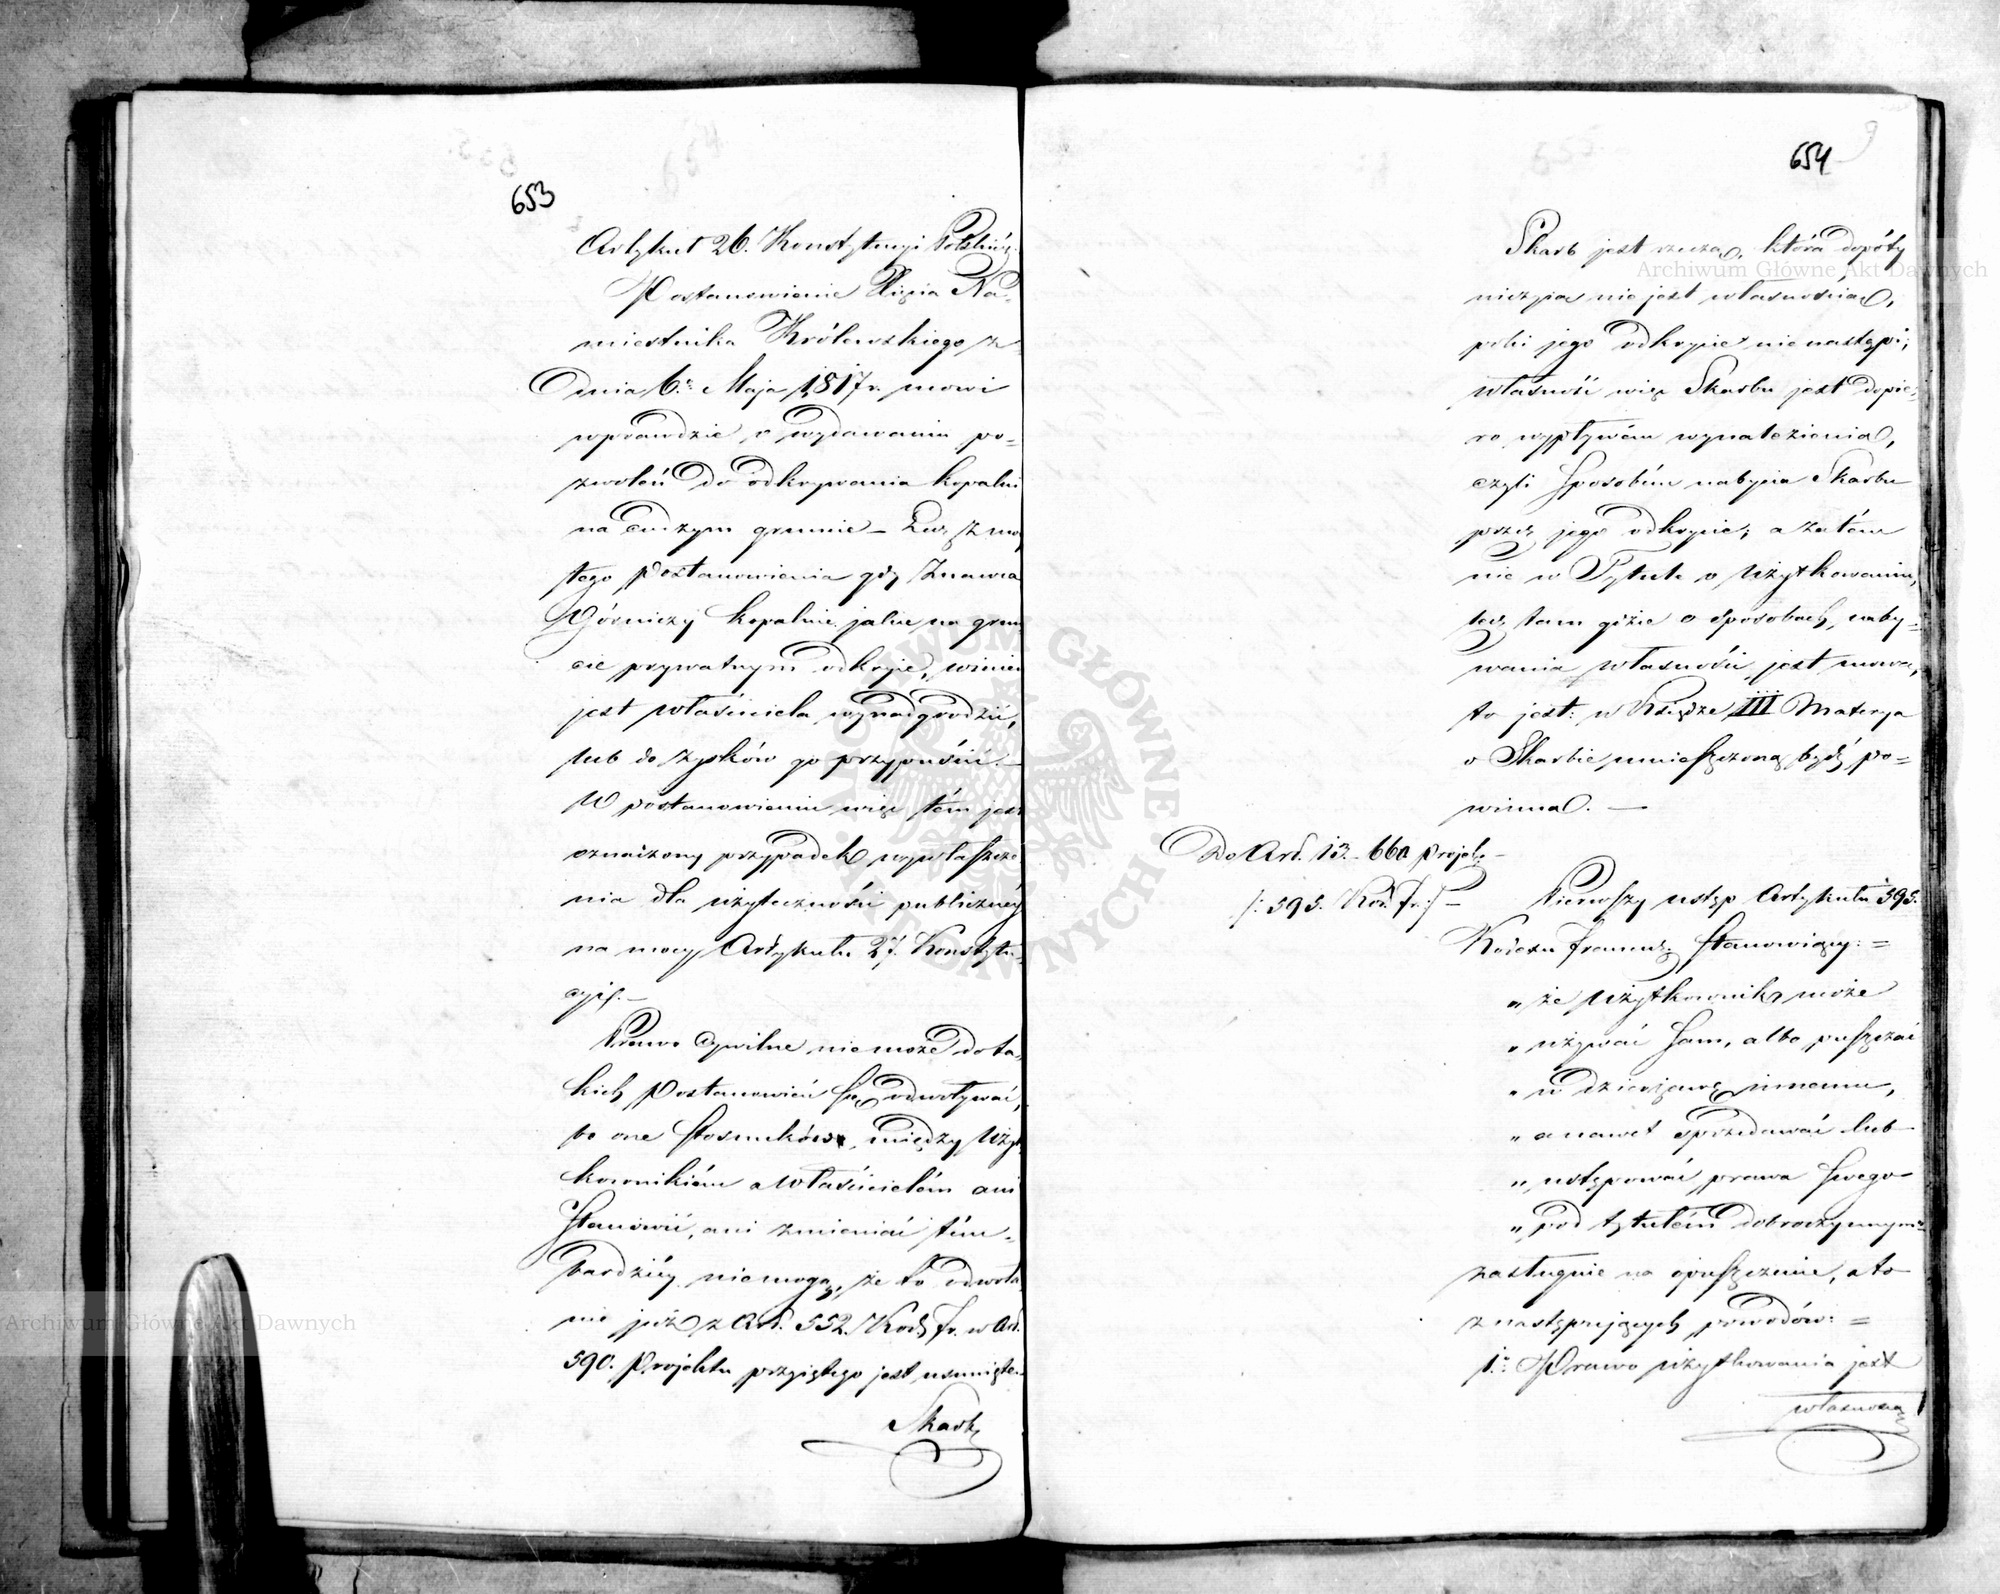 653
Artykuł 26. Konstytucyi Polskiéy.
Postanowienie Xięcia Na-
miestnika Królewskiego z
dnia 6º Maja 1817 r. mowi
wprawdzie o wydawaniu po=
zwoleń do odkrywania kopalni
na cudzym gruncie – Lecz z mocy
tego postanowienia gdy Znawca
Górniczy kopalnie jakie na grun
cie prywatnym odkryje, winien
jest właściciela wynadgrodzić,
lub do zysków go przypuścić. –
W postanowieniu więc tém jest
oznaczony przypadek wywłaszcze
nia dla użyteczności publicznéy
na mocy Artykułu 27. Konstytu-
cyi. –
Prawo Cywilne niemoże do ta-
kich Postanowień się odwoływać,
bo one stosunków, między Użyt
kownikiém a Właścicielém ani
stanowić, ani zmieniać tém-
bardziéy niemogą, że to odwoła
nie już z Art. 552. Kod. fr. w Art.
590. Projektu przyiętego jest usunięte.
Skarb
654
Skarb jest rzeczą, która dopóty
niczyią nie jest własnością,
póki jego odkrycie nie nastąpi;
własność więc Skarbu jest dopie-
ro wypływém wynalezienia,
czyli sposobém nabycia Skarbu
przez jego odkrycie; a zatém
nie w Tytule o Użytkowaniu,
lecz tam gdzie o sposobach naby-
wania własności jest mowa,
to jest: w Księdze III Materya
o Skarbie umieszczoną bydź po=
winna. –
Do Art. 13. – 660 projek. –
/: 595. Kod. fr. :/ –
Pierwszy ustęp Artykułu 595.
Kodexu francuz. stanowiący: =
„ że Użytkownik może
„ używać sam, albo puszczać
„ w dzierżawę innemu,
„ a nawet sprzedawać lub
„ ustępować prawa swego
„ pod tytułém dobroczynnym
zasługuie na opuszczenie, a to
z następujących powodów: =
1º Prawo użytkowania jest
własnością
Archiwum Główne Akt Dawnych
Archiwum Główne Akt Dawnych
ARCHIWUM GŁÓWNE AKT DAWNYCH